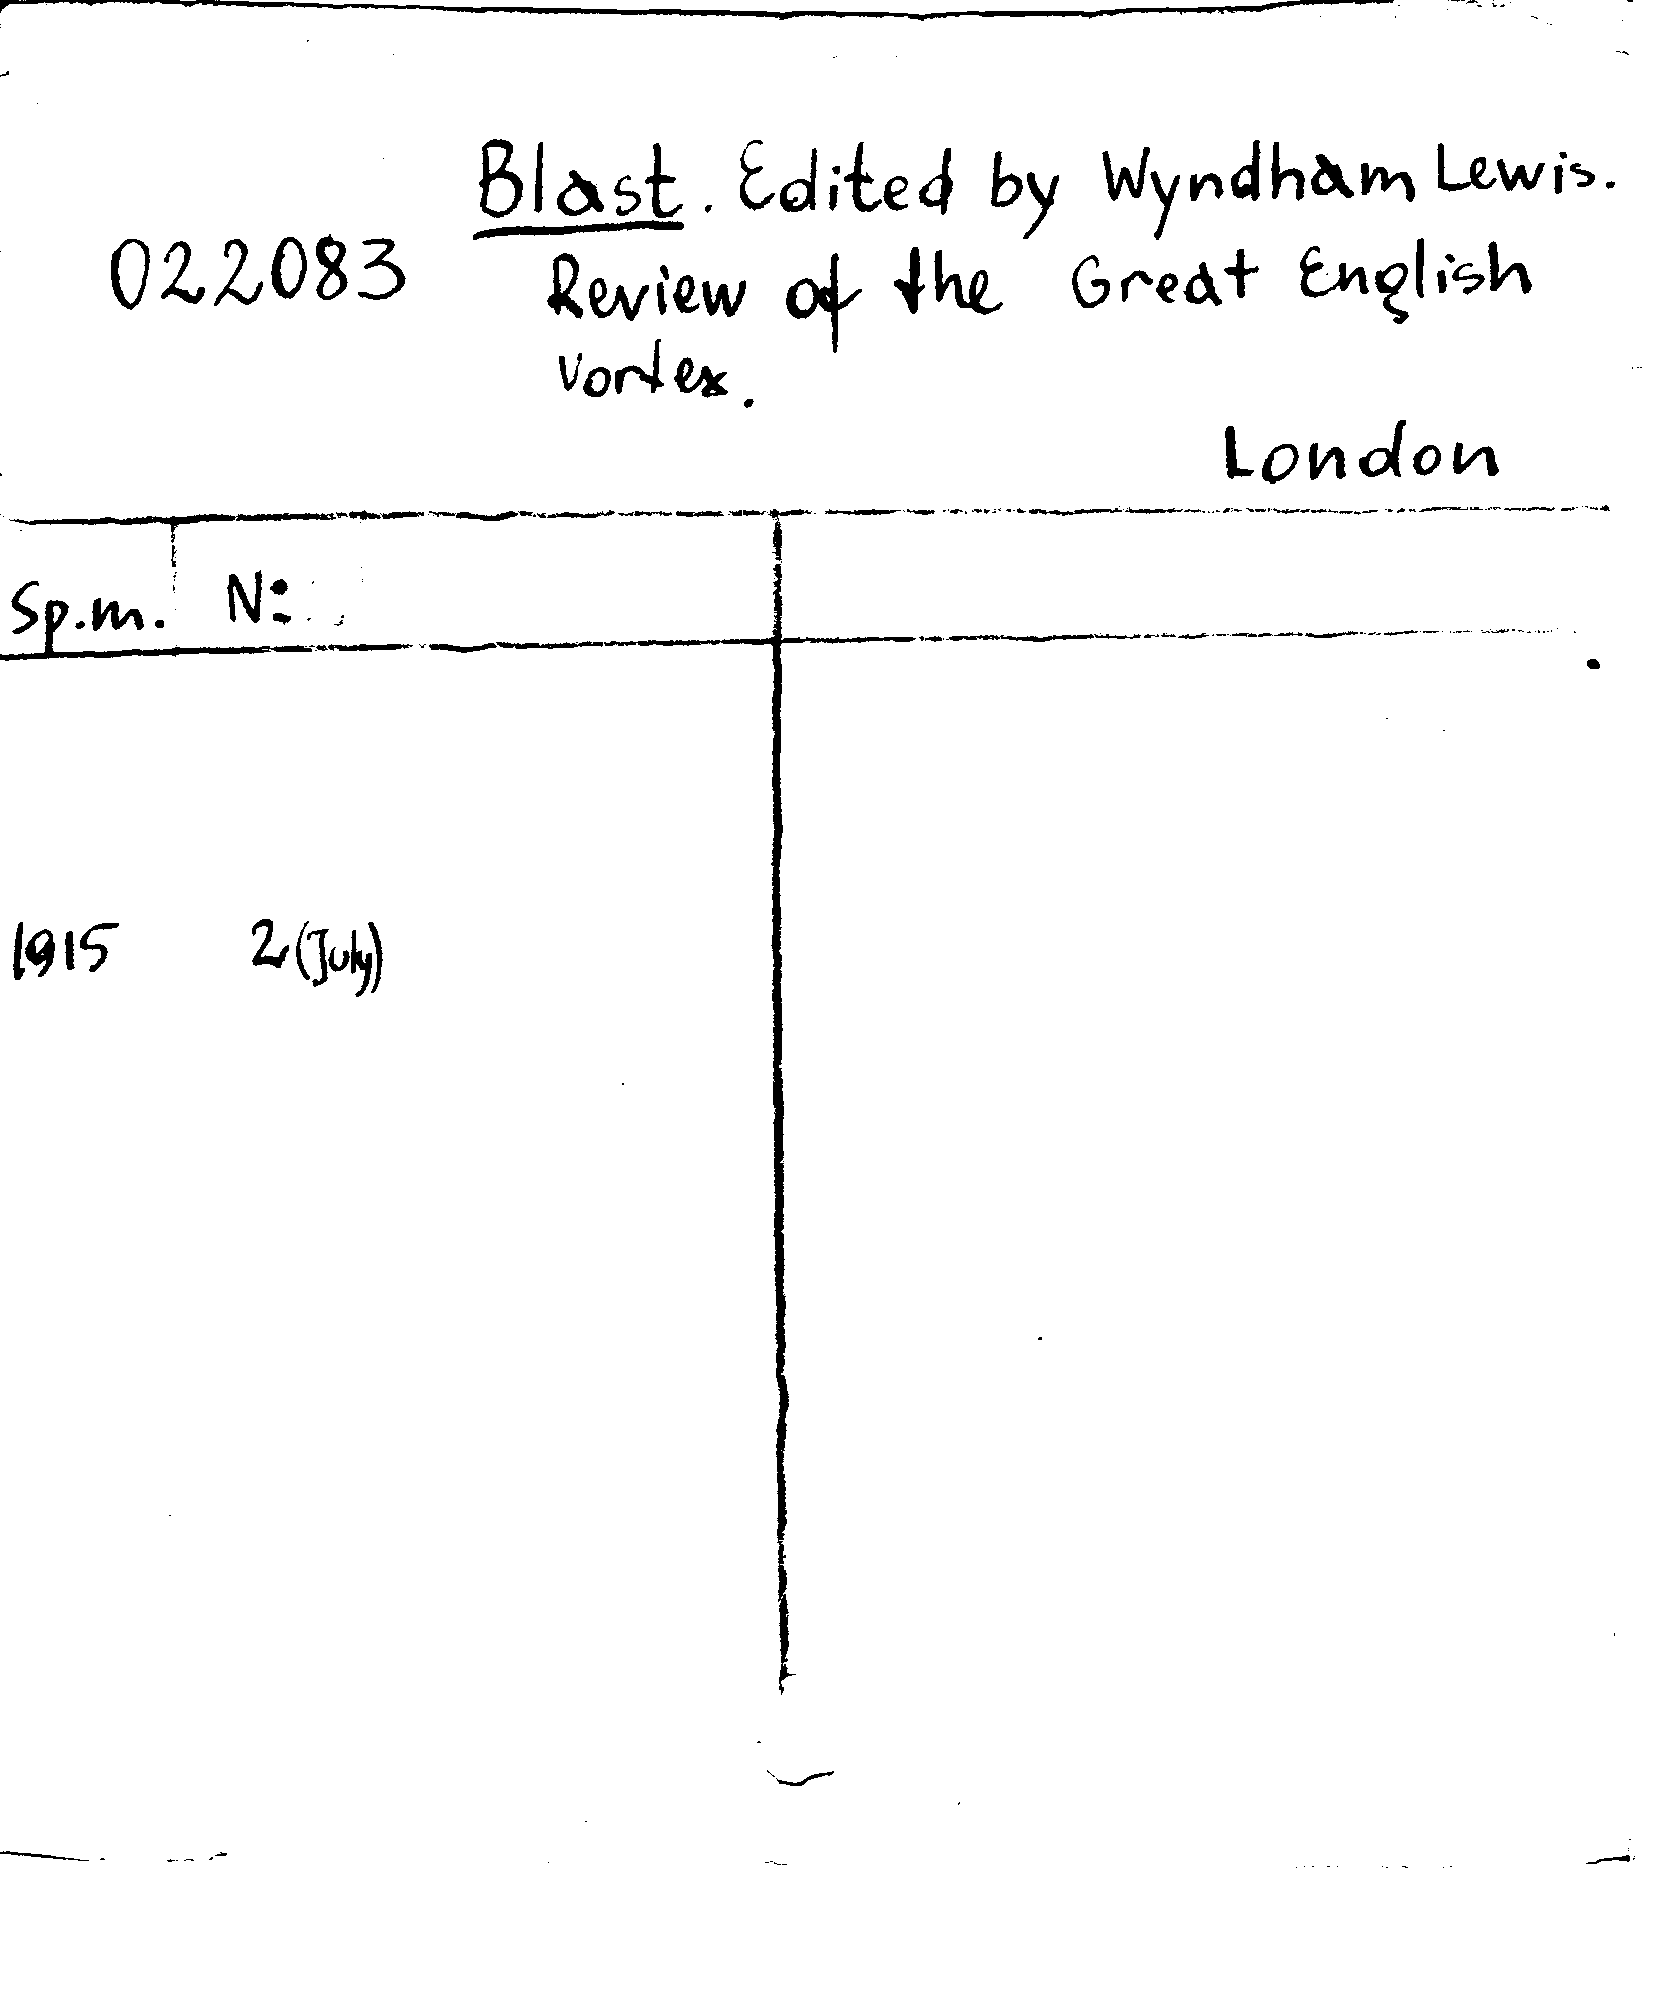 Blast. Edited by Wyndham Lewis.
022083 Review of the Great English
vortex.
London
Sp.m. N:
1915 2 (July)